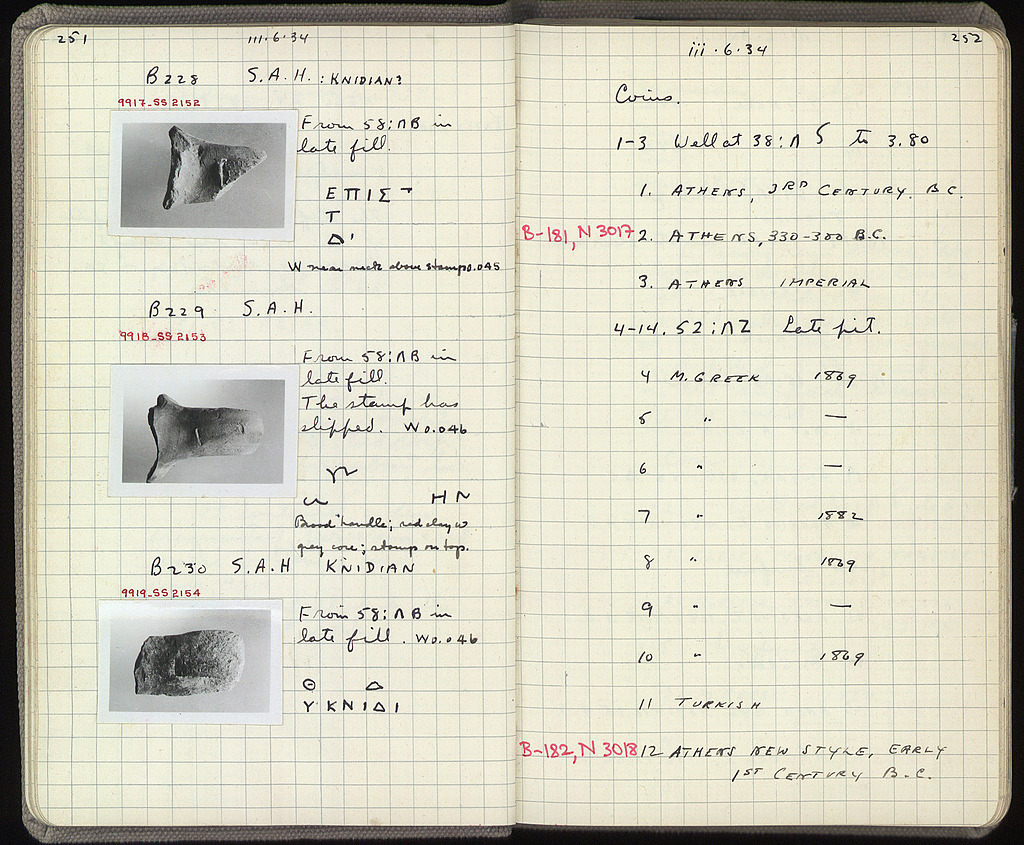 251
iii·6·34
B228 S.A.H. : KNIDIAN?
9917-SS 2152
From 58:ΛB in
late fill.
ΕΠΙΣ
Τ
Δ'
W near neck above stamp 0.045
B229 S.A.H.
9918-SS 2153
From 58:ΛB in
late fill.
The stamp has
slipped. W 0.046
ΗΝ
Broad handle; red clay w
grey core; stamp on top.
B230 S.A.H KNIDIAN
9919-SS 2154
From 58:ΛB in
late fill. W 0.046
Θ Δ
Υ ΚΝΙΔΙ
252
iii·6·34
Coins.
1-3 Well at 38:Λ to 3.80
1. ATHENS, 3RD CENTURY. B.C.
B-181, N 3017 2. ATHENS, 330-300 B.C.
3. ATHENS IMPERIAL
4-14. 52:ΛZ Late pit.
4 M. GREEK 1869
5 " —
6 " —
7 " 1882
8 " 1869
9 " —
10 " 1869
11 TURKISH
B-182, N 3018 12 ATHENS NEW STYLE, EARLY
1ST CENTURY B.C.